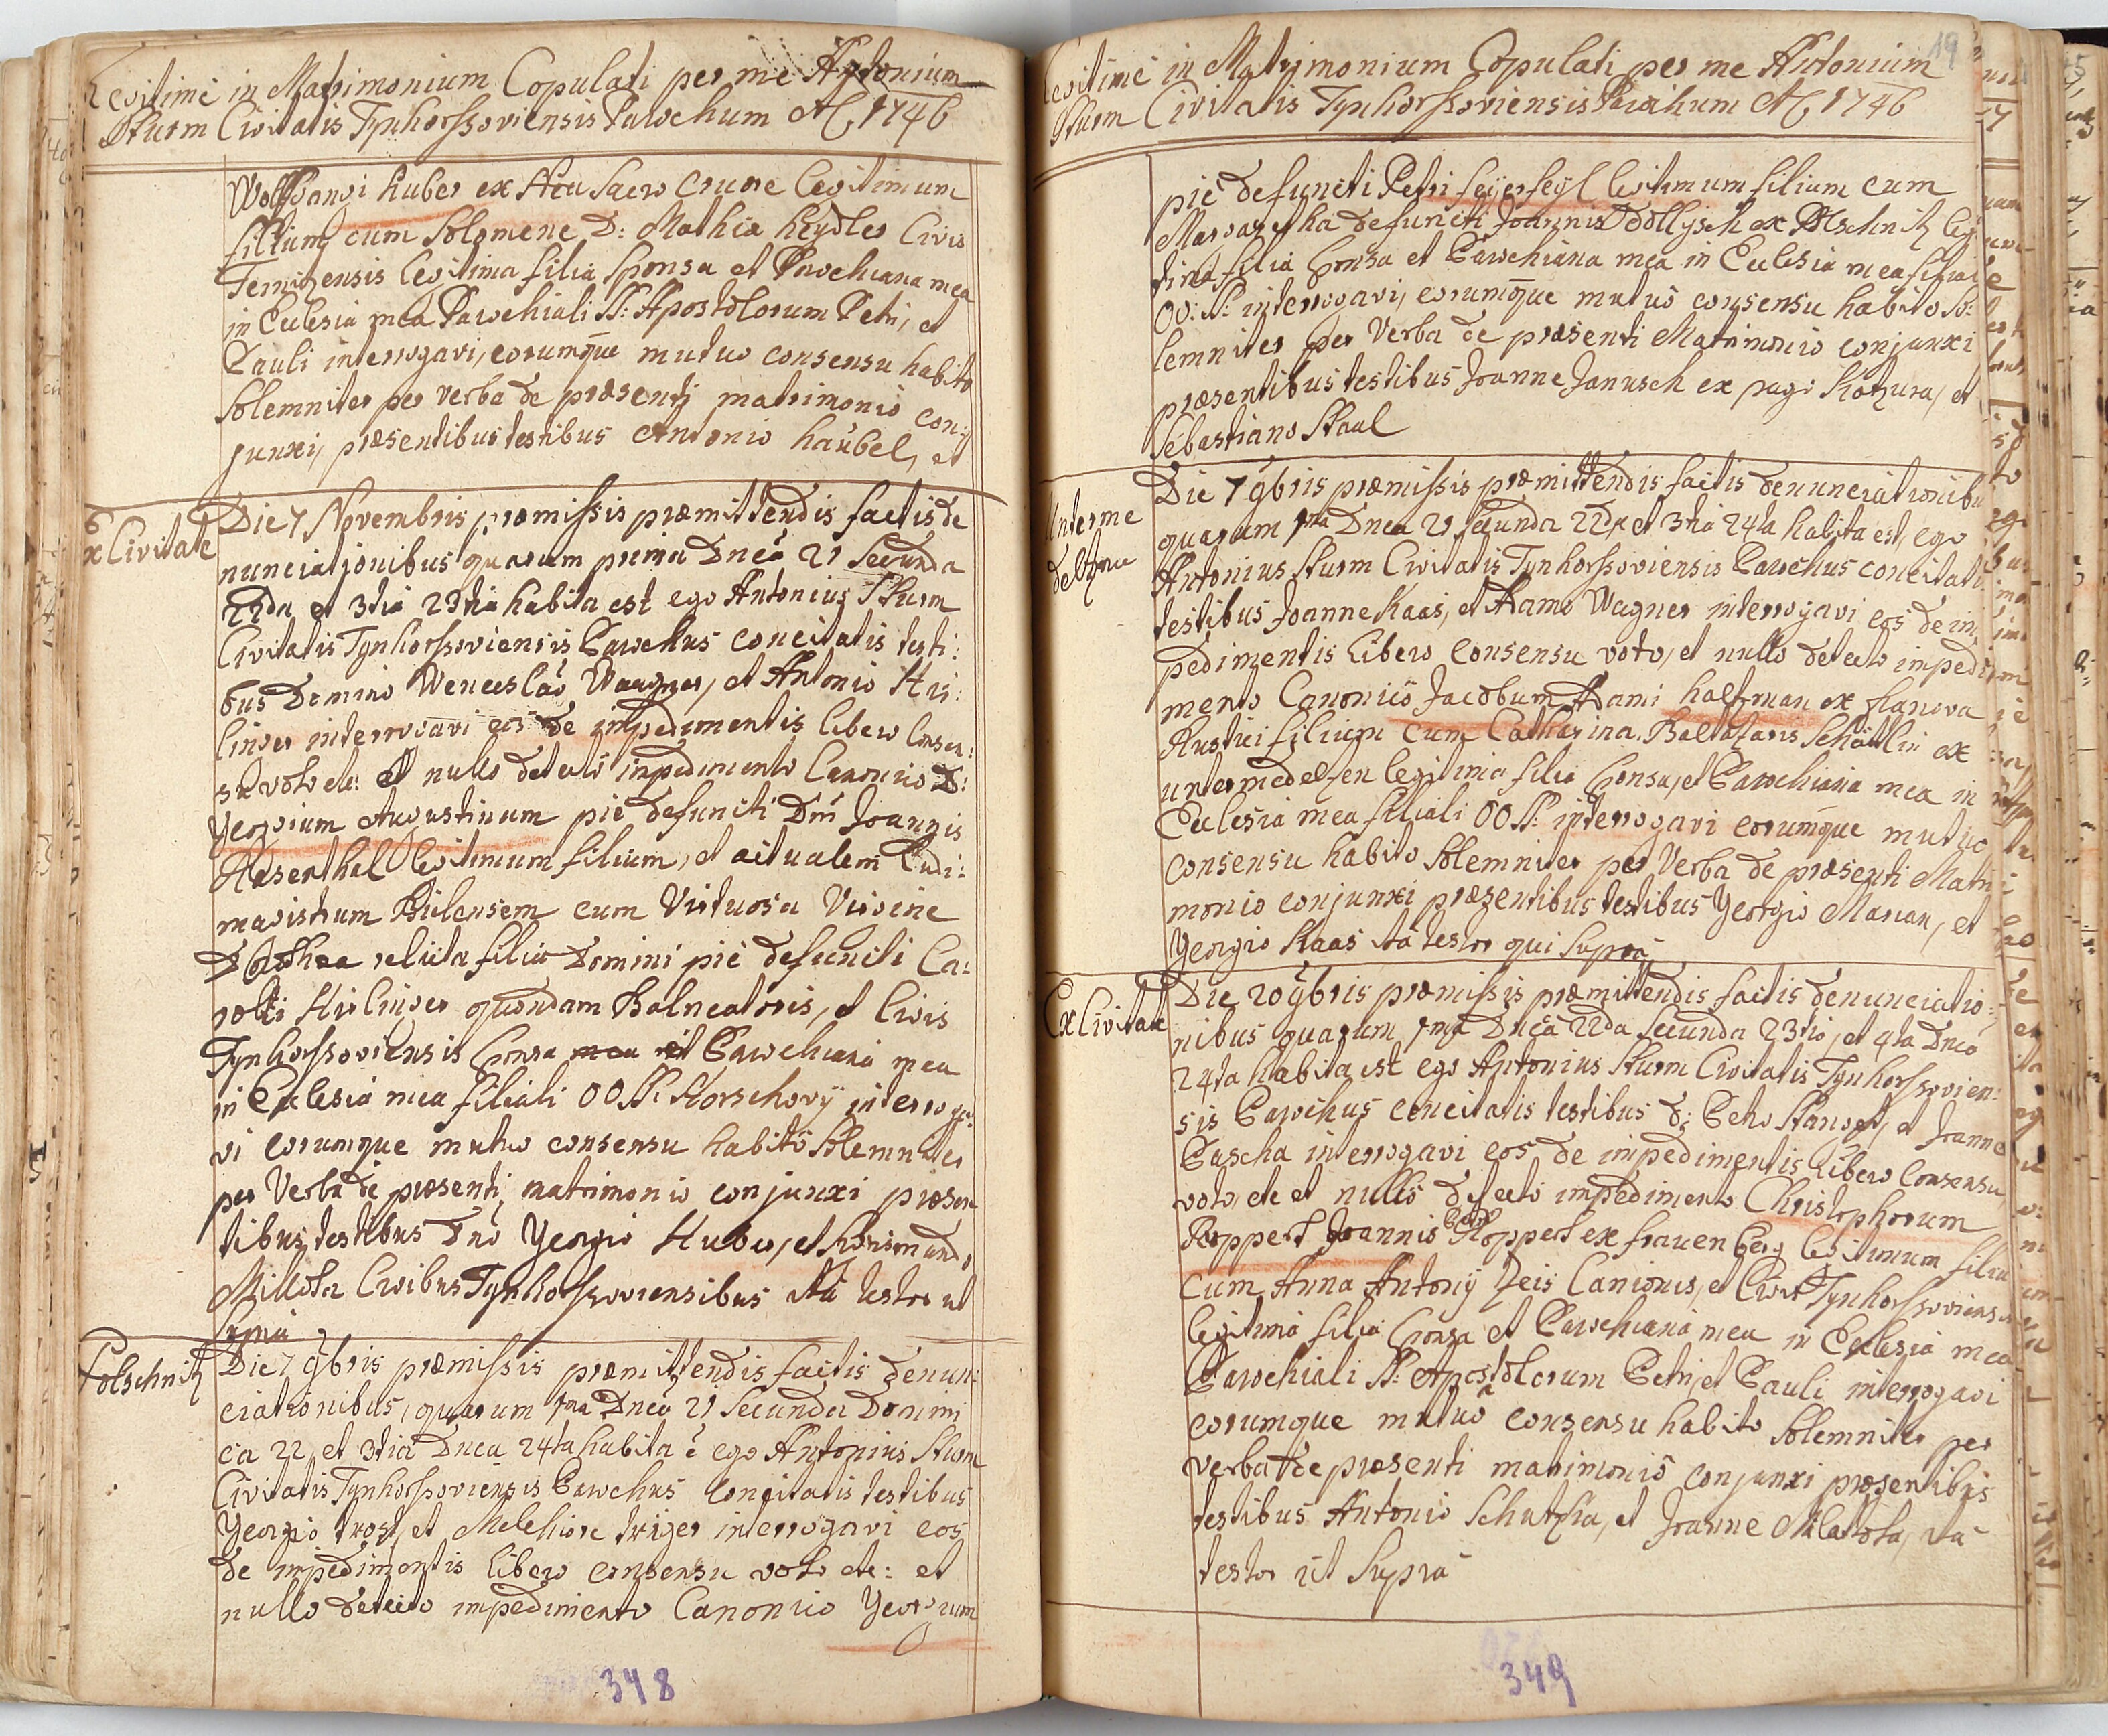 Legitimè in Matrimonium Copulati per me Antonium
Sturm Civitatis Tynhorssoviensis Parochum A 1746
Wolfgangi Huber ex Sacro legitimum
filium cum Solomene D: Mathia Heydler Civis
legitima filia Sponsa et Parochiana mea
in Eclesia mea Parochiali SS: Apostolorum Petri, et
Pauli interrogavi, eorumque mutuo consensu habito
Solemniter per verba de præsenti matrimonio con:
junxi, præsentibus testibus Antonio Haübel, et
ex Civitate
Die 7 Novembris præmissis præmittendis factis de
nunciationibus quarum prima Dncâ 21 Secunda
22da et 3tia 23tia habita est ego Antonius Sturm
Civitatis Tynhorssoviensis Parochus concitatis testi:
bus Domino Wenceslao Waugner, et Antonio Hir:
linger interrogavi eos de impedimentis libero Consen:
su voto etc: et nullo detecto inpedimento Canonico D:
Georgium Augustinum piè defuncti Dni Joannis
legitimum filium, et actualem Ludi:
magistrum Bilensem cum Virtuosa Virgine
Dorothea relicta filia Domini piè defuncti Ca:
roli Hirlinger quondam Balneatoris, et Civis
Tynhorssoviensis Sponsa mea et Parochiana mea
in Eclesia mea filiali OO SS: Horschovÿ interroga:
vi eorumque mutuo consensu habito Solemniter
per Verba de præsenti matrimonio conjunxi præsen
tibus testibus Dno Georgio Huber, et
Millota Civibus Tynhorssoviensibus ita testor ut
Supra
Polschnitz
Die 7 9bris præmissis præmittendis factis denun:
ciationibus, quarum 1ma Dncâ 21 Secunda Domini
ca 22, et 3tia Dnca 24ta habita ê ego Antonius Sturm
Civitatis Tynhorssoviensis Parochus concitatis testibus
Georgio trost, et Melchiore triger interrogavi eos
de inpedimentis libero consensu voto etc: et
nullo detecto impedimento Canonico Georgium
348
19
Legitimè in Matrimonium Copulati per me Antonium
Sturm Civitatis Tynhorssoviensis Parochum A 1746
piè defuncti Petri feyerfeyl legitimum filium cum
Margaretha defuncti Joannis dollÿsch ex Polschnitz legi
tima filia Sponsa et Parochiana mea in Eclesia mea filiali
OO: SS: interrogavi, eorumque mutuo consensu habito So:
lemniter per Verba de præsenti Matrimonio conjunxi
præsentibus testibus Joanne Janusch ex pago Kotzura, et
Sebastiano Staul
Unterme
deltzen
Die 7 9bris præmissis præmittendis factis denunciationibus
quarum 1ma Dnca 21 secunda 22da et 3tia 24ta habita est, ego
Antonius Sturm Civitatis Tynhorssoviensis Parochus concitatis
testibus Joanne Kaas, et Adamo Wagner interrogavi eos de im
pedimentis libero consensu voto, et nullo detecto impedi
mento Canonico Jacobum Adami Halfman ex flanova
Rustici filium cum Catharina Baltasaris Schötlin ex
untermedelzen legitima filia Sponsa, et Parochiana mea in
Eclesia mea filiali OO SS: interrogavi eorumque mutuo
consensu habito Solemniter per Verba de præsenti Matri
monio conjunxi præsentibus testibus Georgio Marian, et
Georgio Kaas ita testor qui Supra
Ex Civitate
Die 20 9bris præmissis præmittendis factis denunciatio:
nibus quarum 1ma Dncâ 22da Secunda 23tia, et 4ta Dnca
24ta habita est ego Antonius Sturm Civitatis Tynhorssovien:
sis Parochus concitatis testibus D: Petro Stanget, et Joanne
Pascha interrogavi eos de impedimentis libero Consensu,
voto, etc et nullo detecto impedimento Christophorum
Roppert Joannis Roppert ex frauenberg legitimum filiu
cum Anna Antonÿ Zeis Lanionis, et Civis Tynhorssoviensis
legitima filia Sponsa et Parochiana mea in Eclesia mea
Parochiali SS: Apostolorum Petri, et Pauli interrogavi
eorumque mutuo consensu habito Solemniter per
verba de præsenti matrimonio conjunxi præsentibus
testibus Antonio Schutzka, et Joanne Milottota, ita
testor ut Supra
349